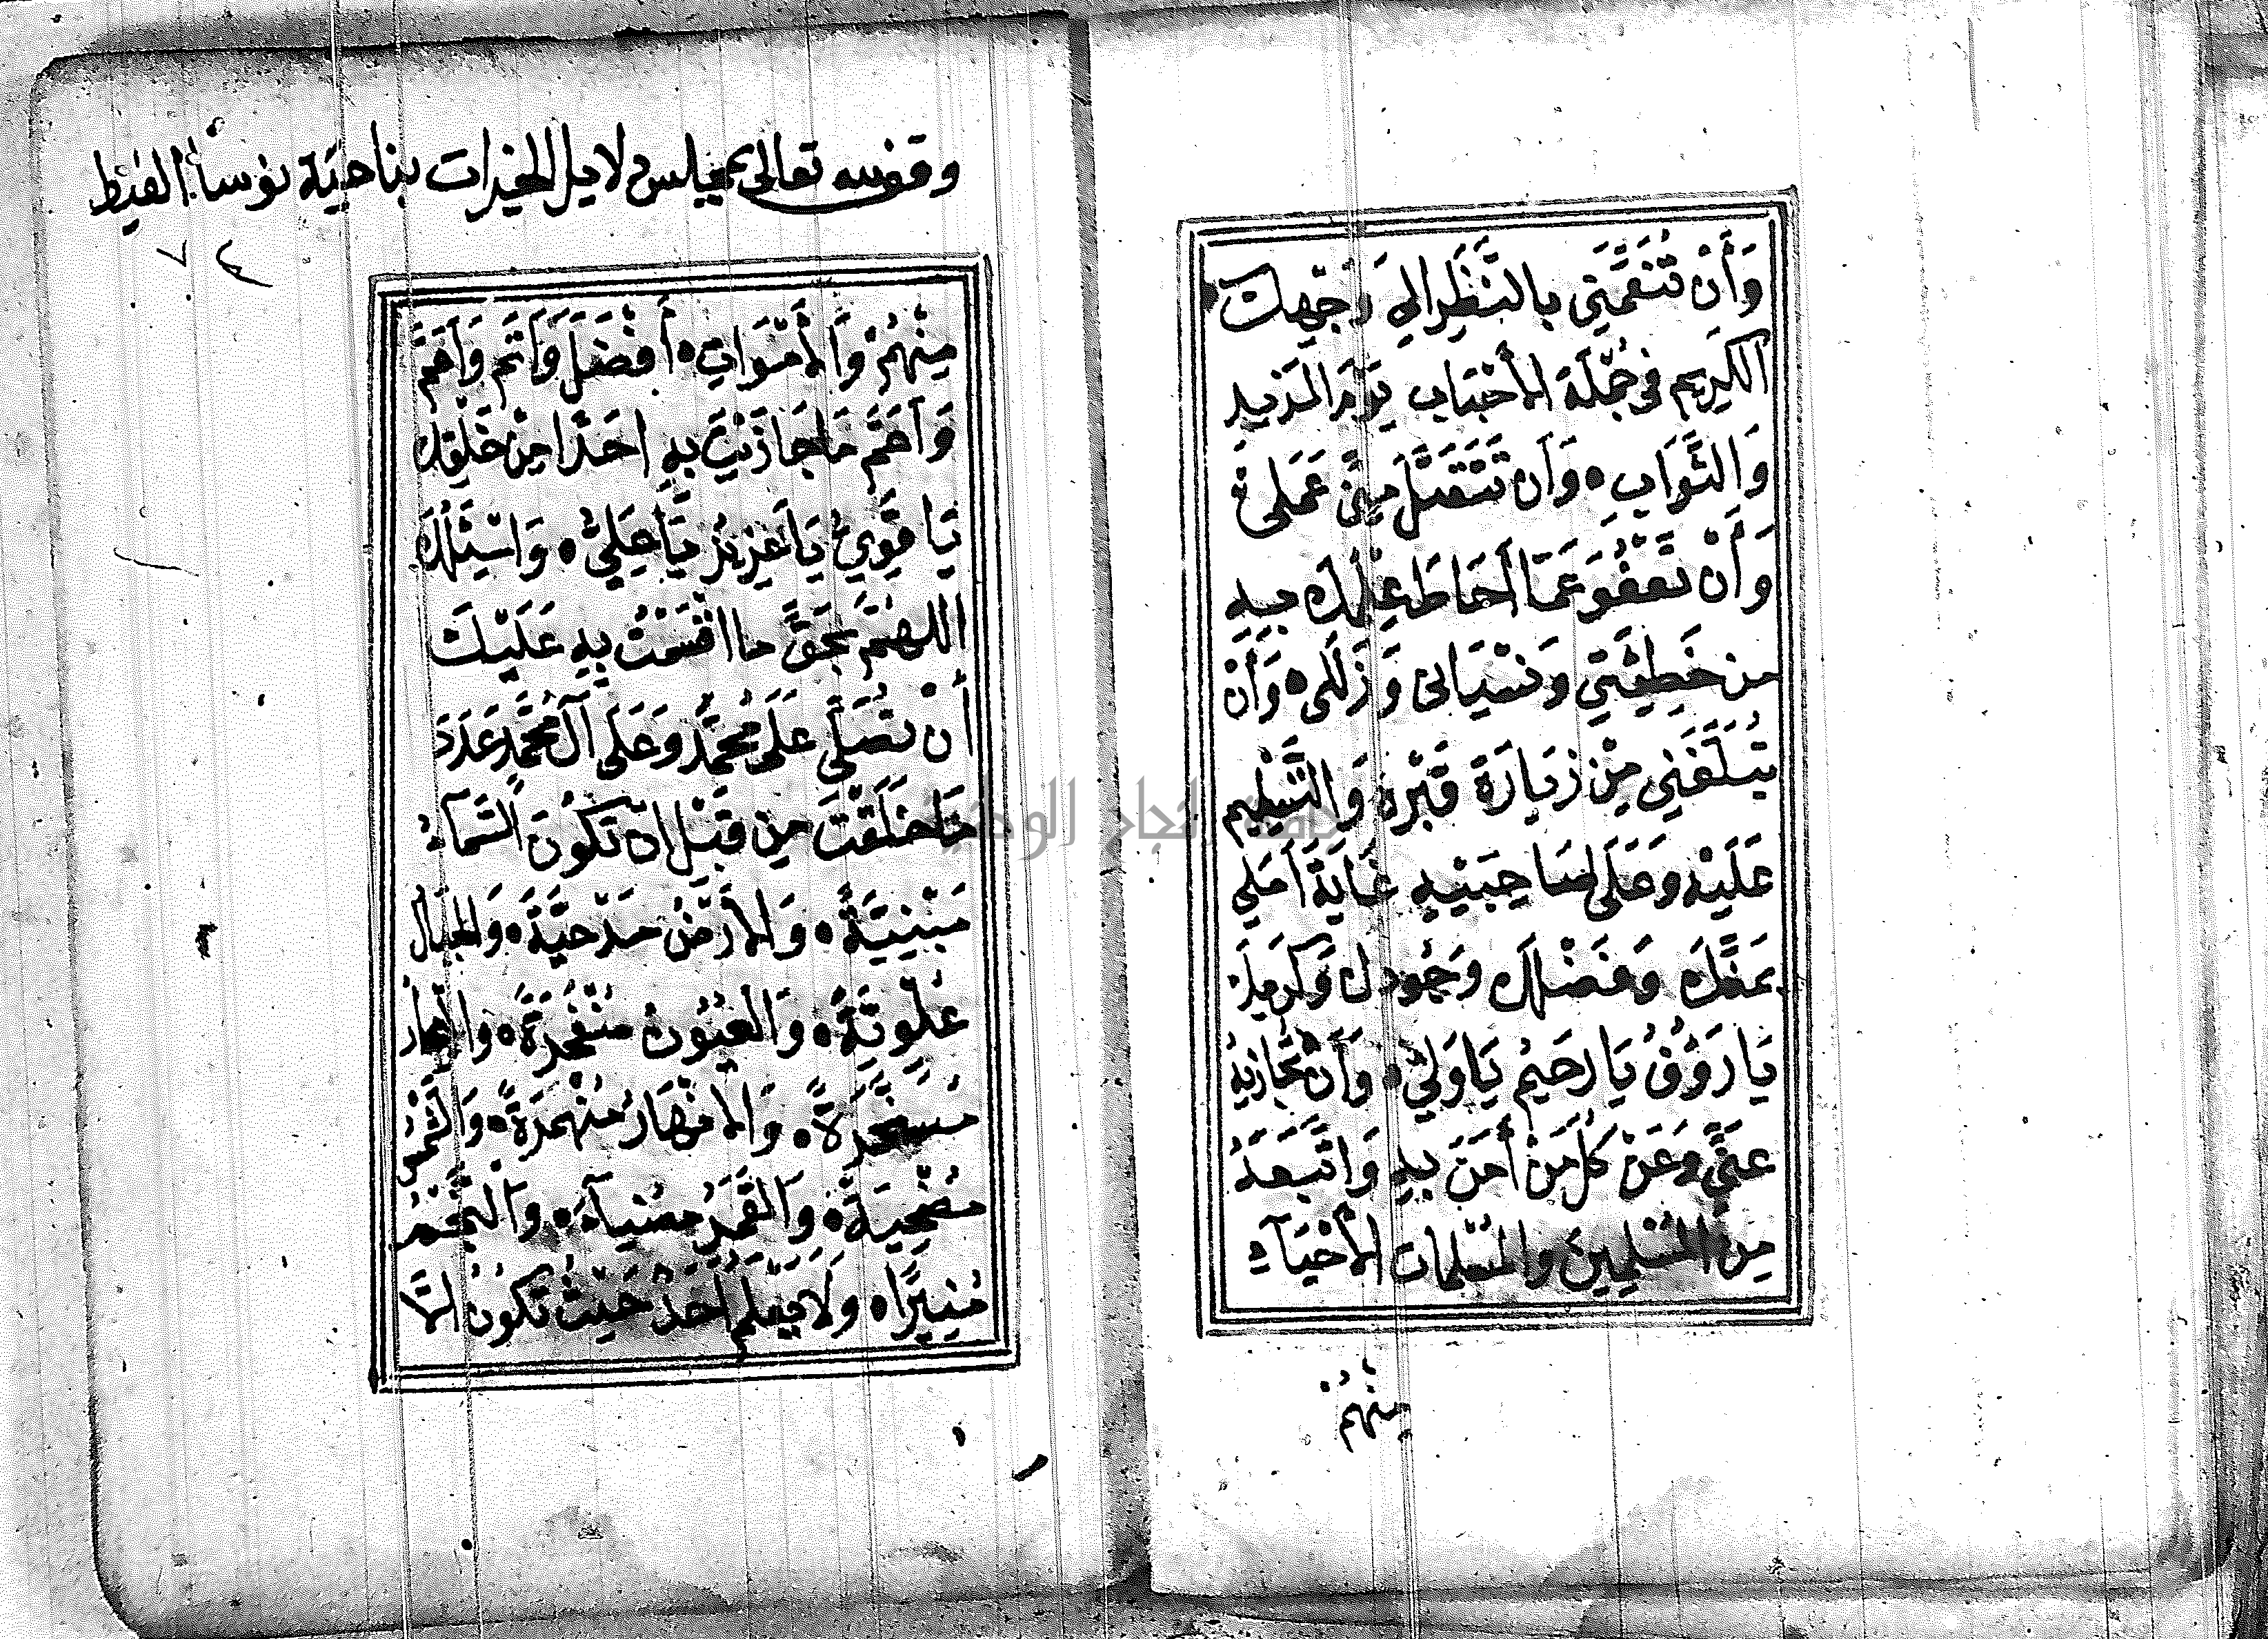 وَأَنْ تُنَعِّمَنِي بِالنَّظَرِ إِلَى وَجْهِكَ
الْكَرِيمِ فِي جُمْلَةِ الْأَحْبَابِ يَوْمَ الْمَزِيدِ
وَالثَّوَابِ ٥ وَأَنْ تَتَقَبَّلَ مِنِّي عَمَلِي
وَأَنْ تَعْفُوَ عَمَّا أَحَاطَ عِلْمُكَ بِهِ
مِنْ خَطِيئَتِي وَنِسْيَانِي وَزَلَلِي ٥ وَأَنْ
تُبَلِّغَنِي مِنْ زِيَارَةِ قَبْرِهِ وَالتَّسْلِيمِ
عَلَيْهِ وَعَلَى صَاحِبَيْهِ غَايَةَ أَمَلِي
بِمَنِّكَ وَفَضْلِكَ وَجُودِكَ وَكَرَمِكَ
يَا رَؤُفُ يَا رَحِيمُ يَا وَلِيُّ ٥ وَأَنْ تُجَازِيَهُ
عَنِّي وَعَنْ كُلِّ مَنْ أَمَنَ بِهِ وَاتَّبَعَهُ
مِنَ الْمُسْلِمِينَ وَالْمُسْلِمَاتِ الْأَحْيَآءِ
مِنْهُمْ
وقف لله تعالى بمجلس دلايل الخيرات بناحية نوسا الغيط
٧٤
مِنْهُمْ وَالْأَمْوَاتِ ٥ أَفْضَلَ وَأَتَمَّ وَأَعَمَّ
وَأَعَمَّ مَا جَازَيْتَ بِهِ احَدًا مِنْ خَلْقِكَ
يَا قَوِيُّ يَا عَزِيزُ يَا عَلِيُّ ٥ وَاسْئَلُكَ
اللَّهُمَّ بِحَقِّ مَا اقْسَمْتُ بِهِ عَلَيْكَ
أَنْ تُصَلِّيَ عَلَى مُحَمَّدٍ وَعَلَى آلِ مُحَمَّدٍ عَدَدَ
مَا خَلَقْتَ مِنْ قَبْلِ انْ تَكُونَ السَّمَآءُ
مَبْنِيَّةً ٥ وَالْأَرْضُ مَدْحِيَّةً ٥ وَالْجِبَالُ
عُلْوِيَّةً ٥ وَالْعُيُونُ مُنْفَجِرَةً ٥ وَالْبِحَارُ
مُسَخَّرَةً ٥ وَالْانْهَارُ مُنْهَمِرَةً ٥ وَالشَّمْسُ
مُضْحِيَةً ٥ وَالْقَمَرُ مُضِيآءً ٥ وَالنَّجْمُ
مُنِيرًا ٥ وَلَا يَعْلَمُ أَحَدٌ حَيْثُ تَكُونُ الَّا
جامعة النجاح الوطنية